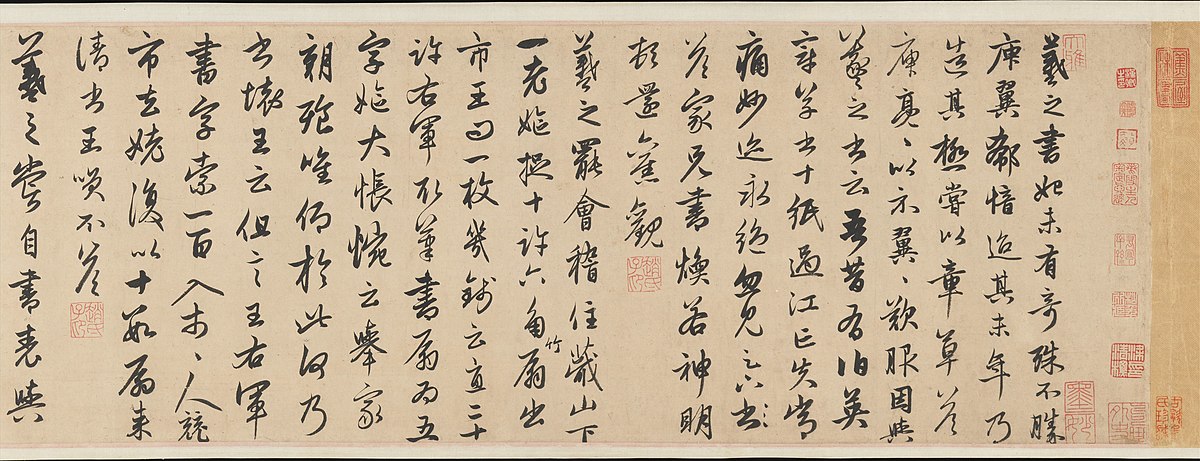 羲之書始未有奇殊不勝
庾翼郗愔迨其末年乃
造其極嘗以章草答
庾亮、以示翼、歎服因與
羲之書云吾昔有伯英
章草書十紙過江亡失常
痛妙迹永絕忽見足下書
答家兄書煥若神明
頓還舊觀
趙氏子昂
羲之罷會稽住蕺山下
一老嫗捉十許六角竹扇出
市王問一枚幾錢云直二十
許右軍取筆書扇為五
字嫗大悵惋云舉家
朝飡唯仰於此何乃
書壞王云但言王右軍
書字索一百入市、人競
市去姥復以十數扇來
請書王笑不答
趙氏子昂
羲之嘗自書表與